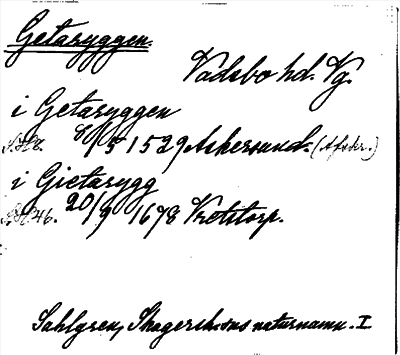 Getaryggen.
Vadsbo hd. Vg.
i Getaryggen
8/5 1529 Askersund. (Afskr.)
i Gietarygg
20/9 1678 Vretstorp.
Sahlgren, Skagershons naturnamn. I